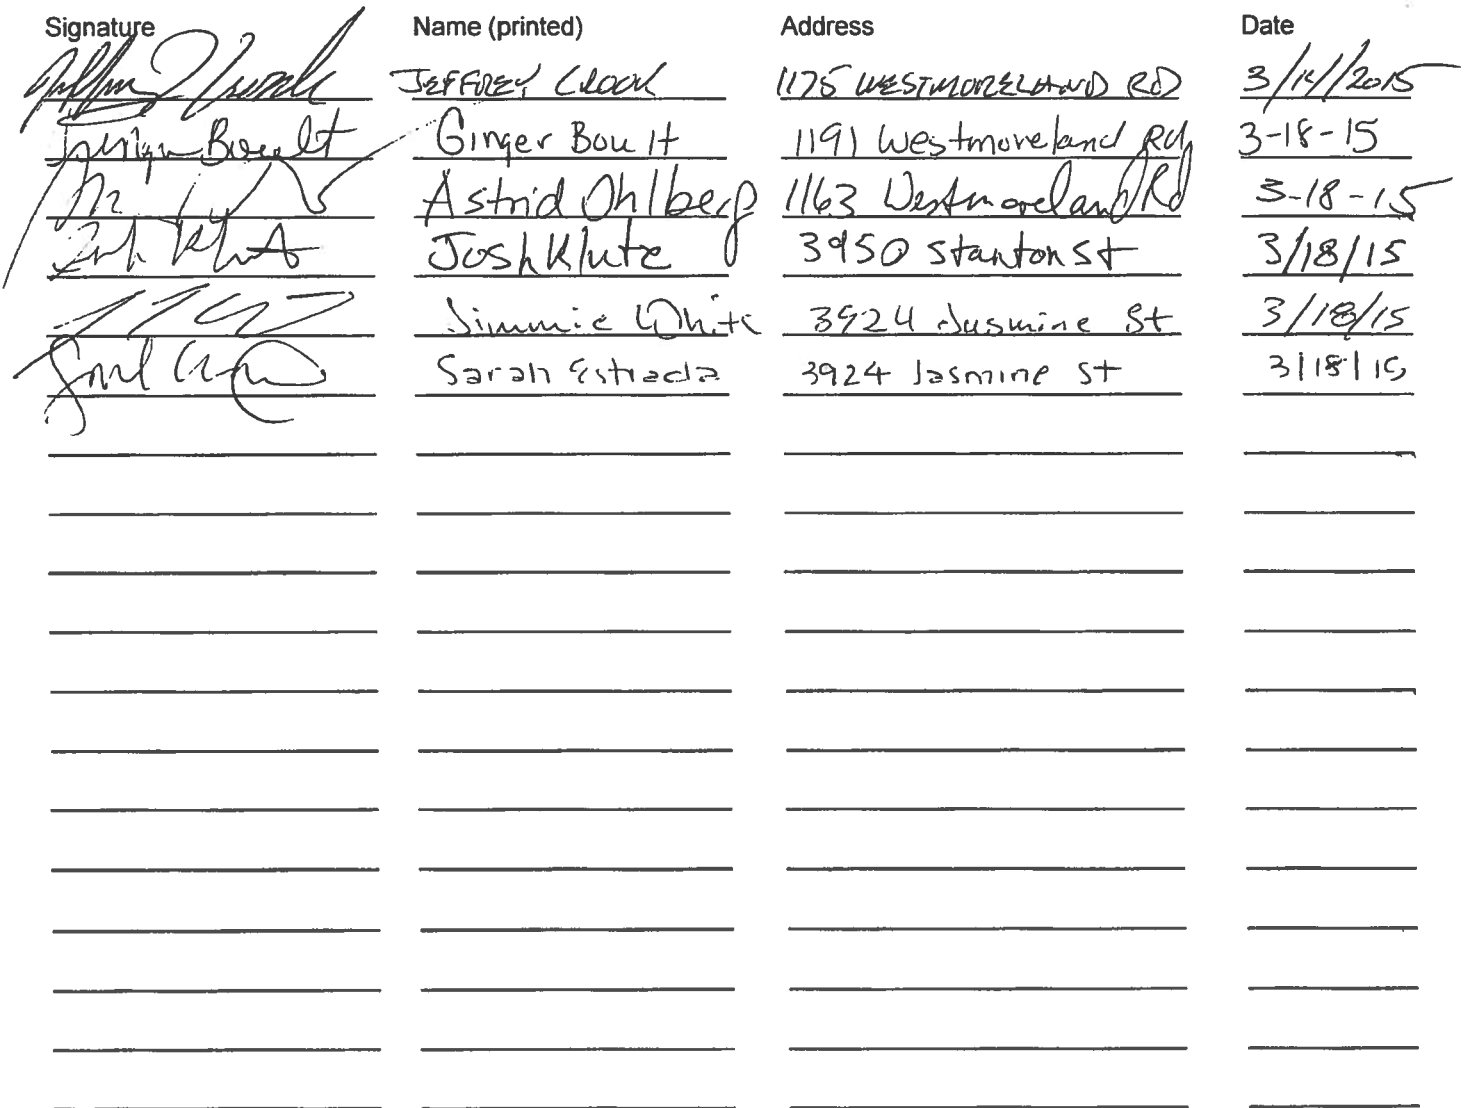 Signature Name (printed) Address Date
JEFFREY CROOK 1175 WESTMORELAND RD 3/18/2015
Ginger Boult Ginger Boult 1191 Westmoreland Rd 3-18-15
Astrid Ohlberg 1163 Westmoreland Rd 3-18-15
Josh Klute 3950 Stanton St 3/18/15
Jimmie White 3924 Jasmine St 3/18/15
Sarah Estrada 3924 Jasmine St 3/18/15